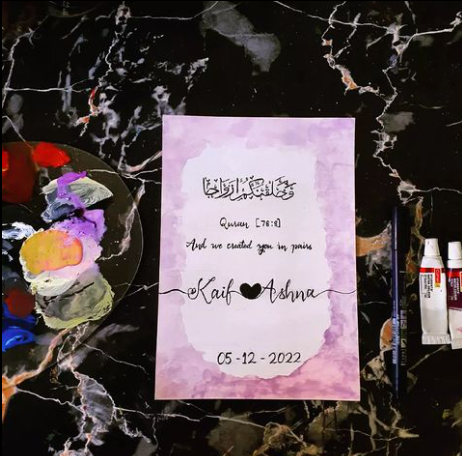 وَخَلَقْنَاكُمْ أَزْوَاجًا
Quraan [78:8]
And we created you in pairs
Kaif Ashna
05-12-2022